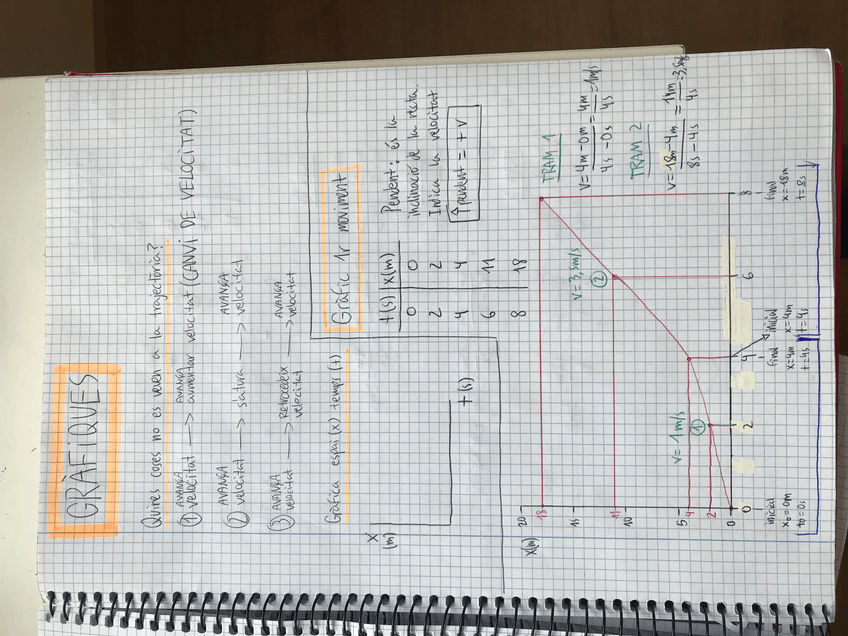 GRÀFIQUES
Quines coses no es veuen a la trajectòria?
① AVANÇA velocitat → AVANÇA augmentar velocitat (CANVI DE VELOCITAT)
② AVANÇA velocitat → s'atura → AVANÇA velocitat
③ AVANÇA velocitat → Retrocedeix velocitat → AVANÇA velocitat
Gràfica espai (x) temps (t)
X
(m)
t (s)
Gràfic 1r moviment
t(s) x(m)
0 0
2 2
4 4
6 11
8 18
Pendent: és la
inclinació de la recta.
Indica la velocitat
↑ pendent = + v
x(m)
20
18
15
11
10
5
4
2
0
0 2 4 6 8
v = 1 m/s
①
v = 3,5 m/s
②
TRAM 1
v = 4m - 0m / 4s - 0s = 4m / 4s = 1 m/s
TRAM 2
v = 18m - 4m / 8s - 4s = 14m / 4s =
inicial
x₀ = 0m
t₀ = 0s
final
x = 4m
t = 4s
inicial
x = 4m
t = 4s
final
x = 18m
t = 8s